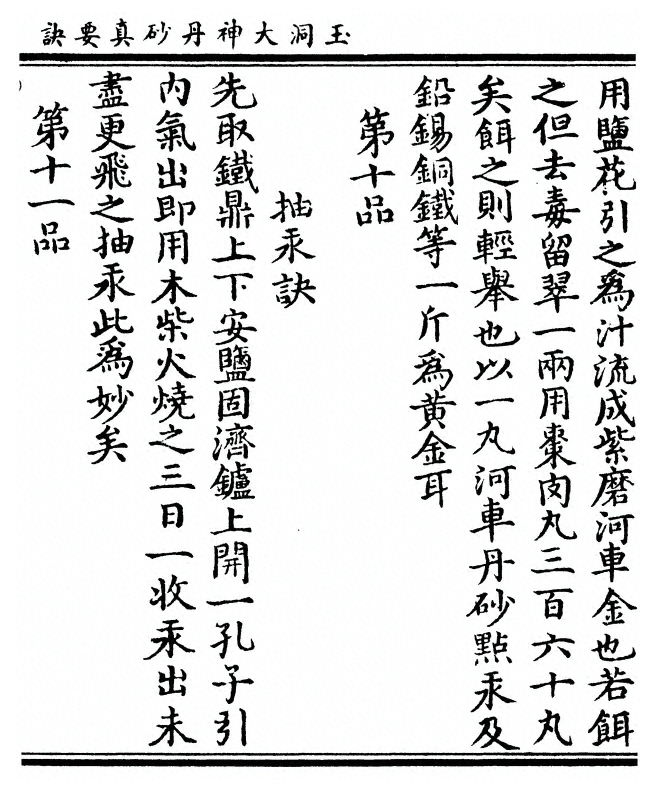 玉洞大神丹砂真要訣
用鹽花引之為汁流成紫磨河車金也若餌
之但去毒留翠一兩用棗肉丸三百六十丸
矣餌之則輕舉也以一丸河車丹砂點汞及
鉛錫銅鐵等一斤為黃金耳
第十品
抽汞訣
先取鐵鼎上下安鹽固濟鑪上開一孔子引
內氣出即用木柴火燒之三日一收汞出未
盡更飛之抽汞此為妙矣
第十一品